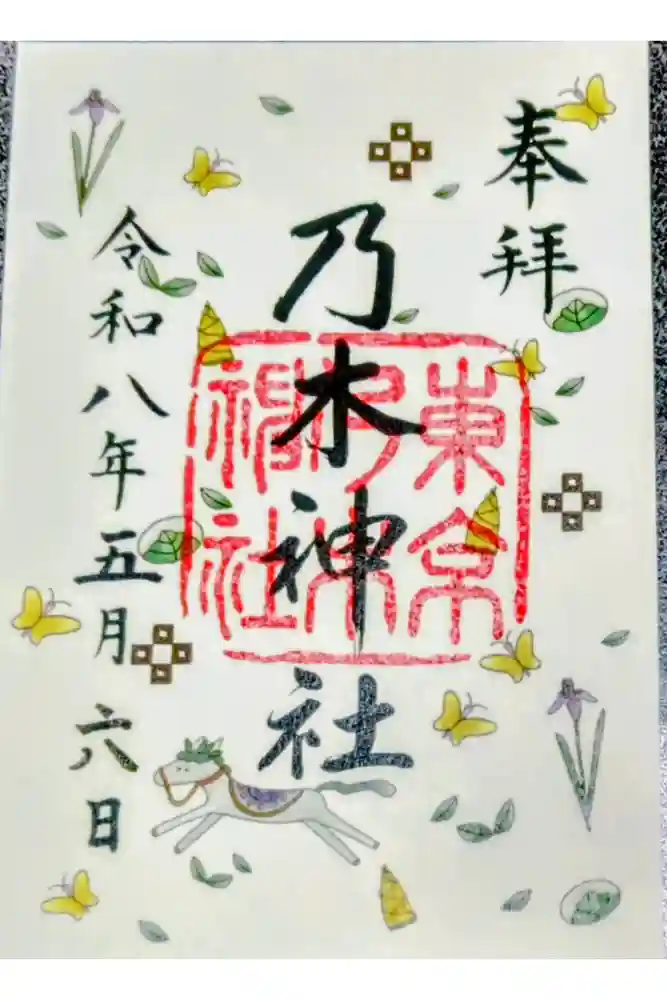 奉拝
乃木神社
東京乃木神社
令和八年五月六日